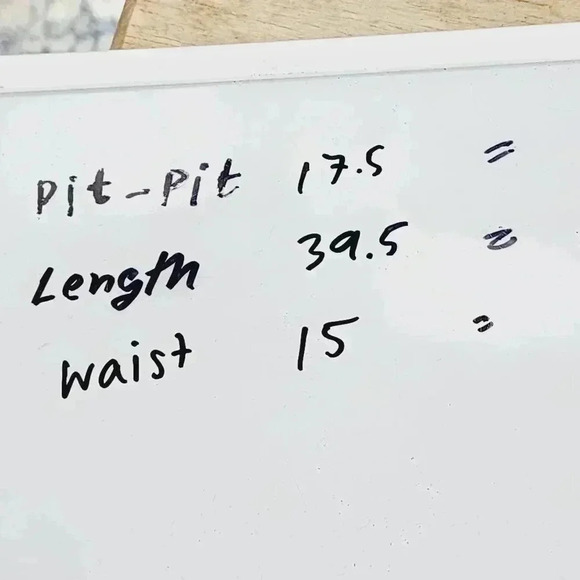 Pit-Pit 17.5 "
Length 39.5 "
Waist 15 "